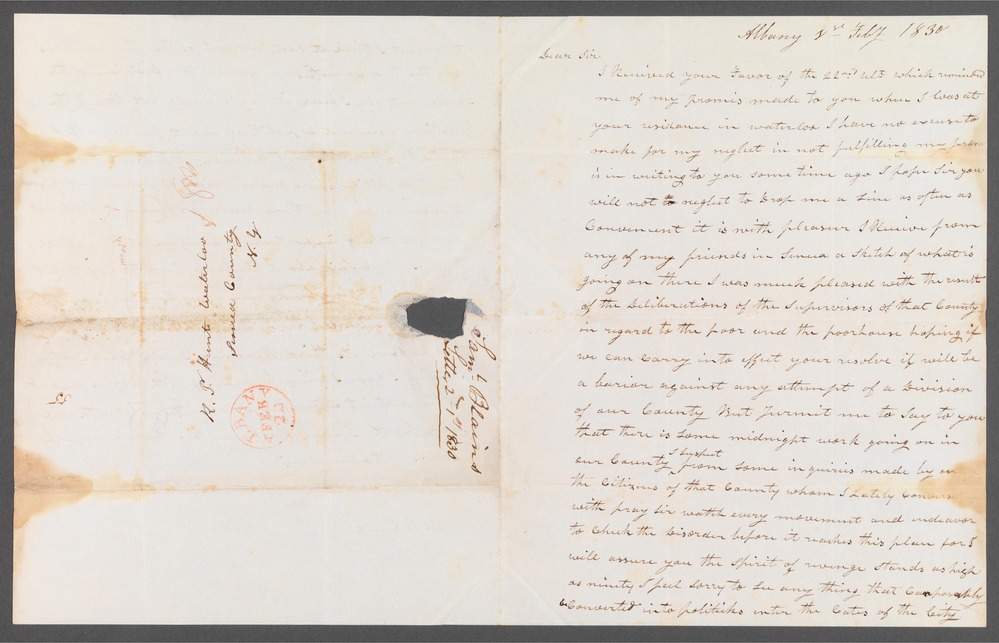 Albany 1st Feby 1830
Dear Sir
I Received your Favor of the 22nd ult which reminded
me of my promis made to you when I was at
your residance in waterloo I have no excuse to
make for my neglect in not fulfilling my prom
is in writing to you some time ago I hope Sir you
will not to neglect to Drop me a Line as often as
Convenient it is with pleasur I Receive from
any of my friends in Seneca a Sketch of what is
going on there I was much pleased with the result
of the Deliberations of the Supervisors of that County
in regard to the poor and the poorhouse hoping if
we can Carry into effect your resolve it will be
a barior against any attempt of a Division
of our County But permit me to Say to you
that there is Some midnight work going on in
our County I suspect from Some inquiries made by on
the Citizens of that County whom I Lately Convers
with pray Sir watch every movement and endeavor
to Check the Disorder before it reaches this place for I
will assure you the Spirit of revenge Stands as high
as ninety I feel Sorry to See any thing that Can porably
be Converted into politicks enter the Gates of the City
R. P. Hunt Waterloo
Seneca County
N. Y
ALBANY
FEB
Saml Blains
Letter 1st 1830